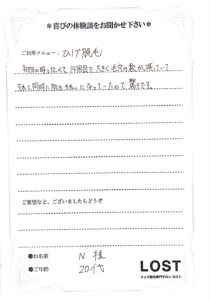 ＊喜びの体験談をお聞かせ下さい＊
ご利用メニュー：ひげ脱毛
初回の時と比べて1ヶ月目で大きく毛穴の数が減っていって
とても円滑に脱毛きれいになっていったので驚きです。
ご要望など、ございましたらどうぞ
●お名前 N 様
●ご年齢 20代
LOST
メンズ脱毛専門サロン ロスト